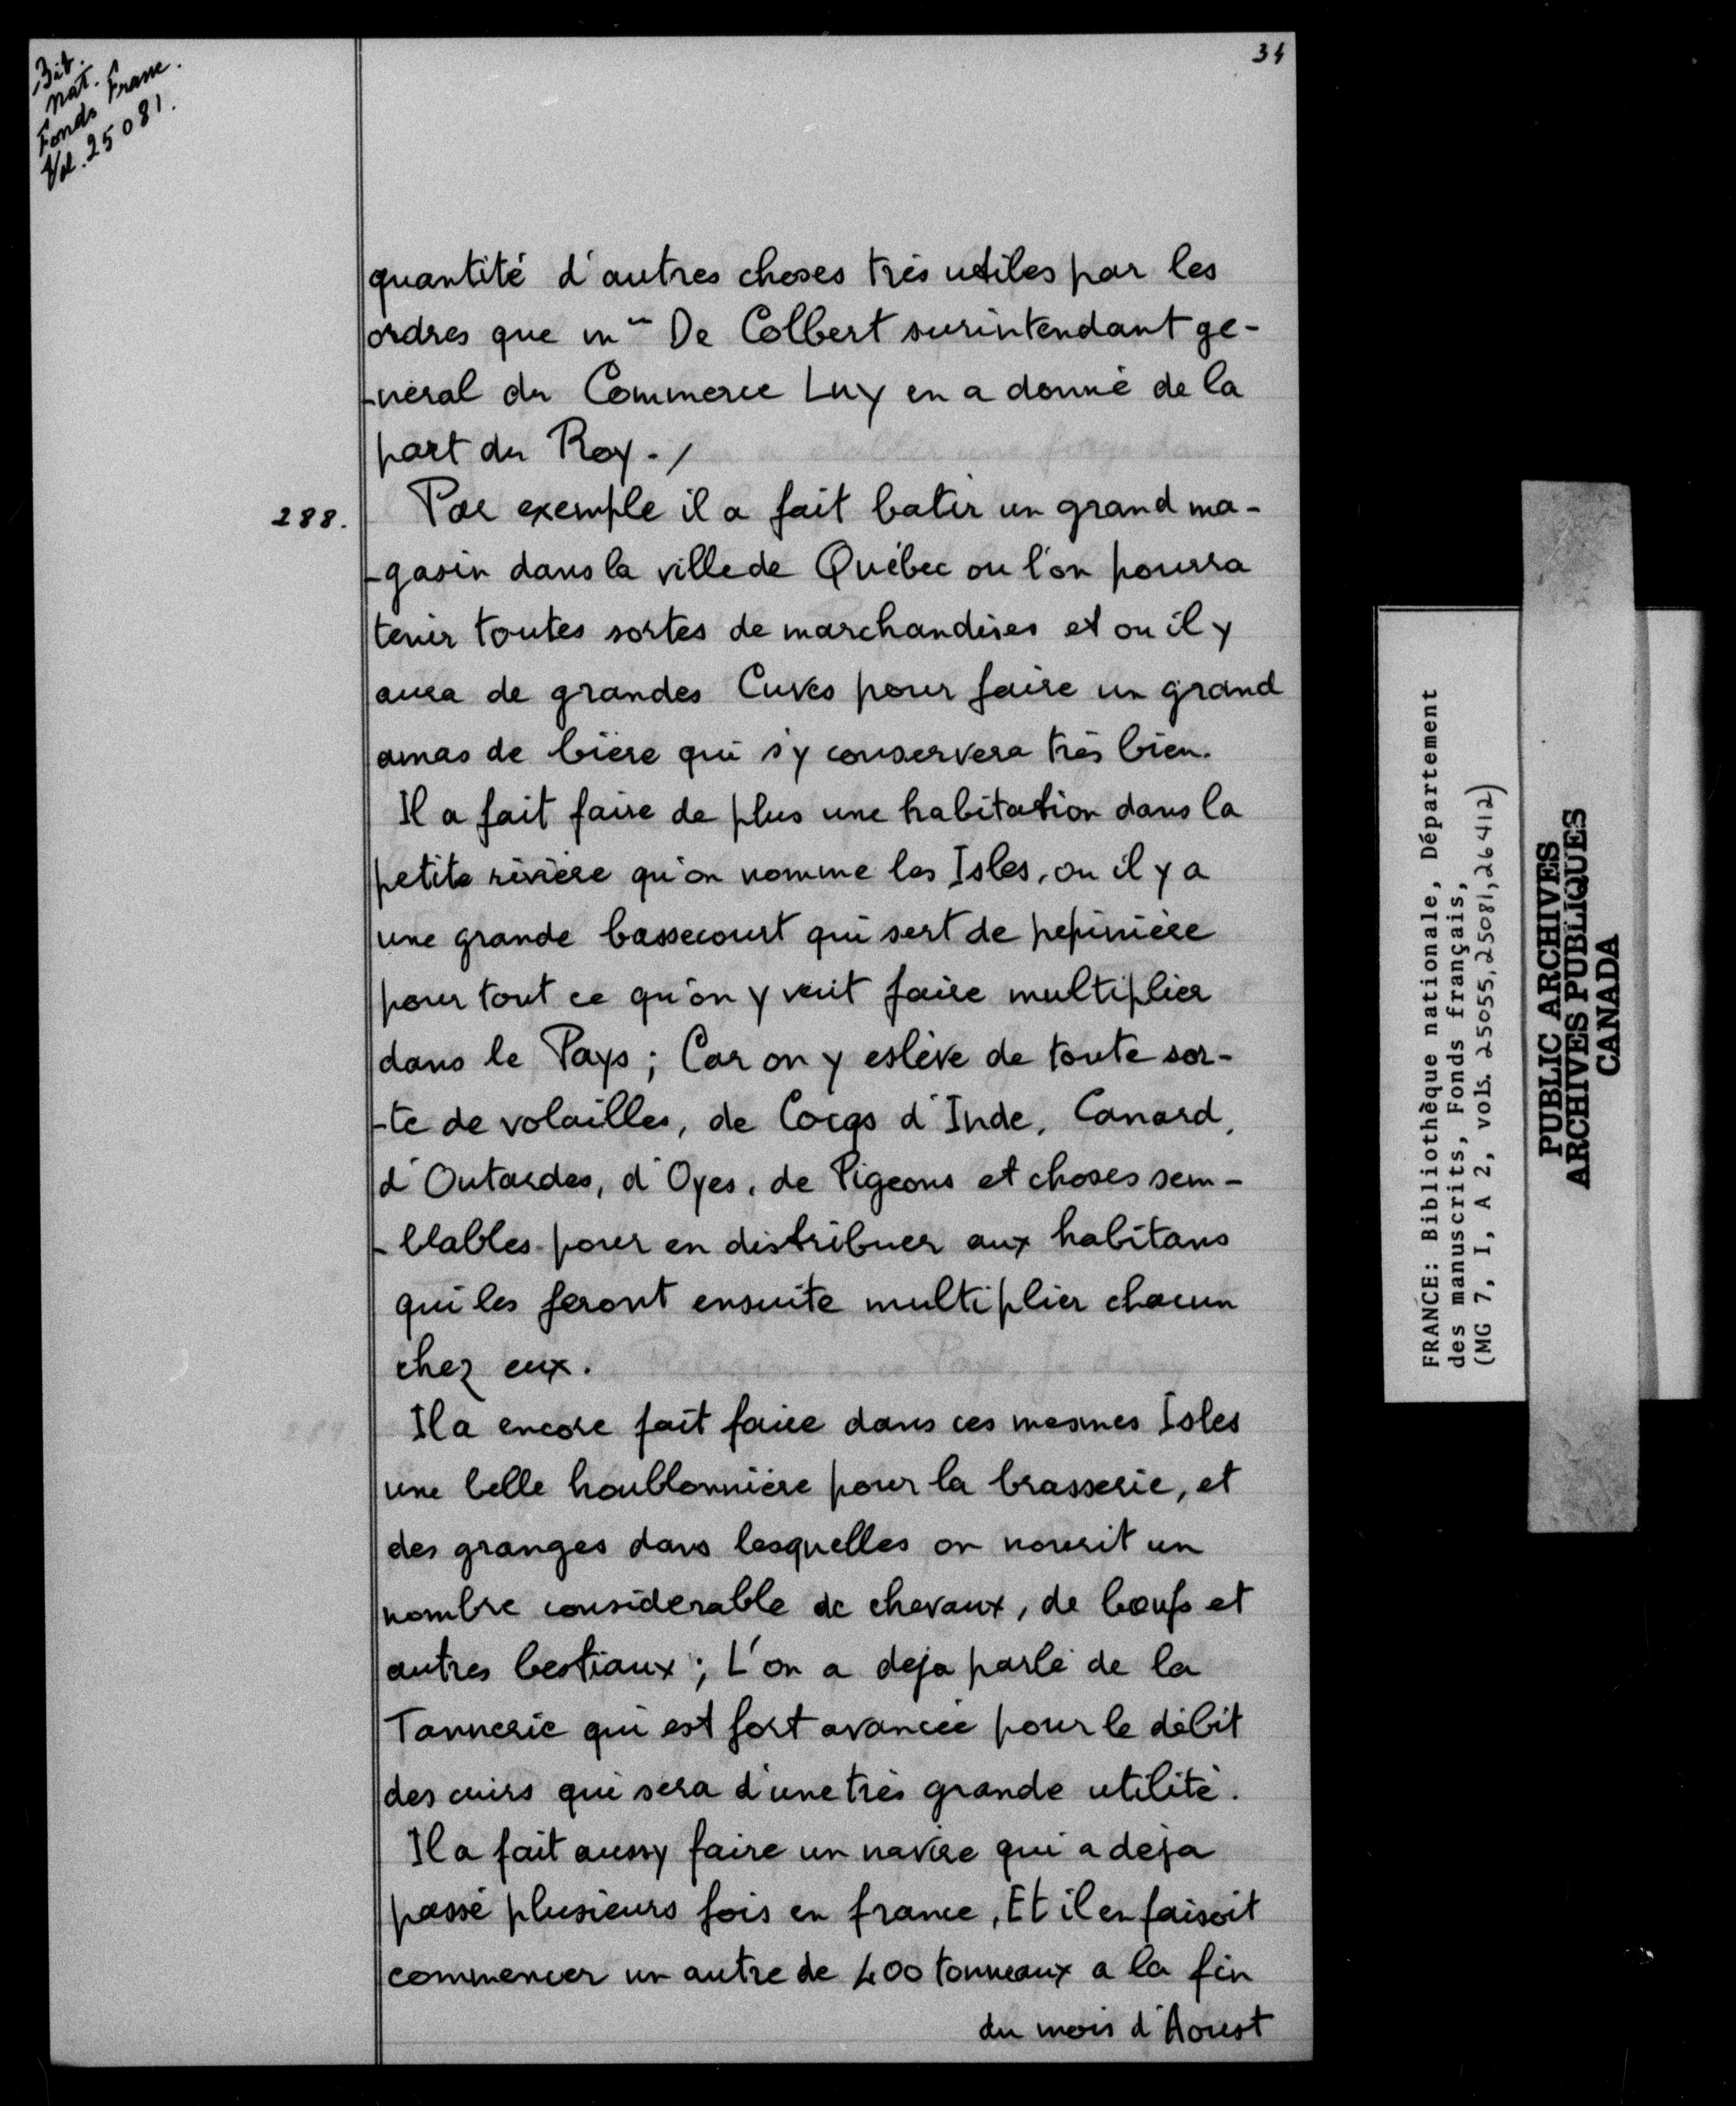 34
Bib.
Nat.
Fonds Franc.
Vol. 25081.
quantité d'autres choses très utiles par les
ordres que mr De Colbert surintendant ge-
-neral du Commerce Luy en a donné de la
part du Roy. /
288.
Par exemple il a fait batir un grand ma-
-gasin dans la ville de Québec ou l'on pourra
tenir toutes sortes de marchandises et ou il y
aura de grandes Cuves pour faire un grand
amas de bière qui s'y conservera très bien.
Il a fait faire de plus une habitation dans la
petite rivière qu'on nomme les Isles, ou il y a
une grande bassecourt qui sert de pepinière
pour tout ce qu'on y veut faire multiplier
dans le Pays ; Car on y eslève de toute sor-
-te de volailles, de Cocqs d'Inde, Canard,
d'Outardes, d'Oyes, de Pigeons et choses sem-
-blables pour en distribuer aux habitans
qui les feront ensuite multiplier chacun
chez eux.
289
Il a encore fait faire dans ces mesmes Isles
une belle houblonnière pour la brasserie, et
des granges dans lesquelles on nourit un
nombre considerable de chevaux, de bœufs et
autres bestiaux ; L'on a deja parlé de la
Tannerie qui est fort avancée pour le débit
des cuirs qui sera d'une très grande utilité.
Il a fait aussy faire un navire qui a deja
passé plusieurs fois en france, Et il en faisoit
commencer un autre de 400 tonneaux a la fin
du mois d'Aoust
FRANCE: Bibliothèque nationale, Département
des manuscrits, Fonds français,
(MG 7, I, A 2, vols. 25055, 25081, 26412)
PUBLIC ARCHIVES
ARCHIVES PUBLIQUES
CANADA